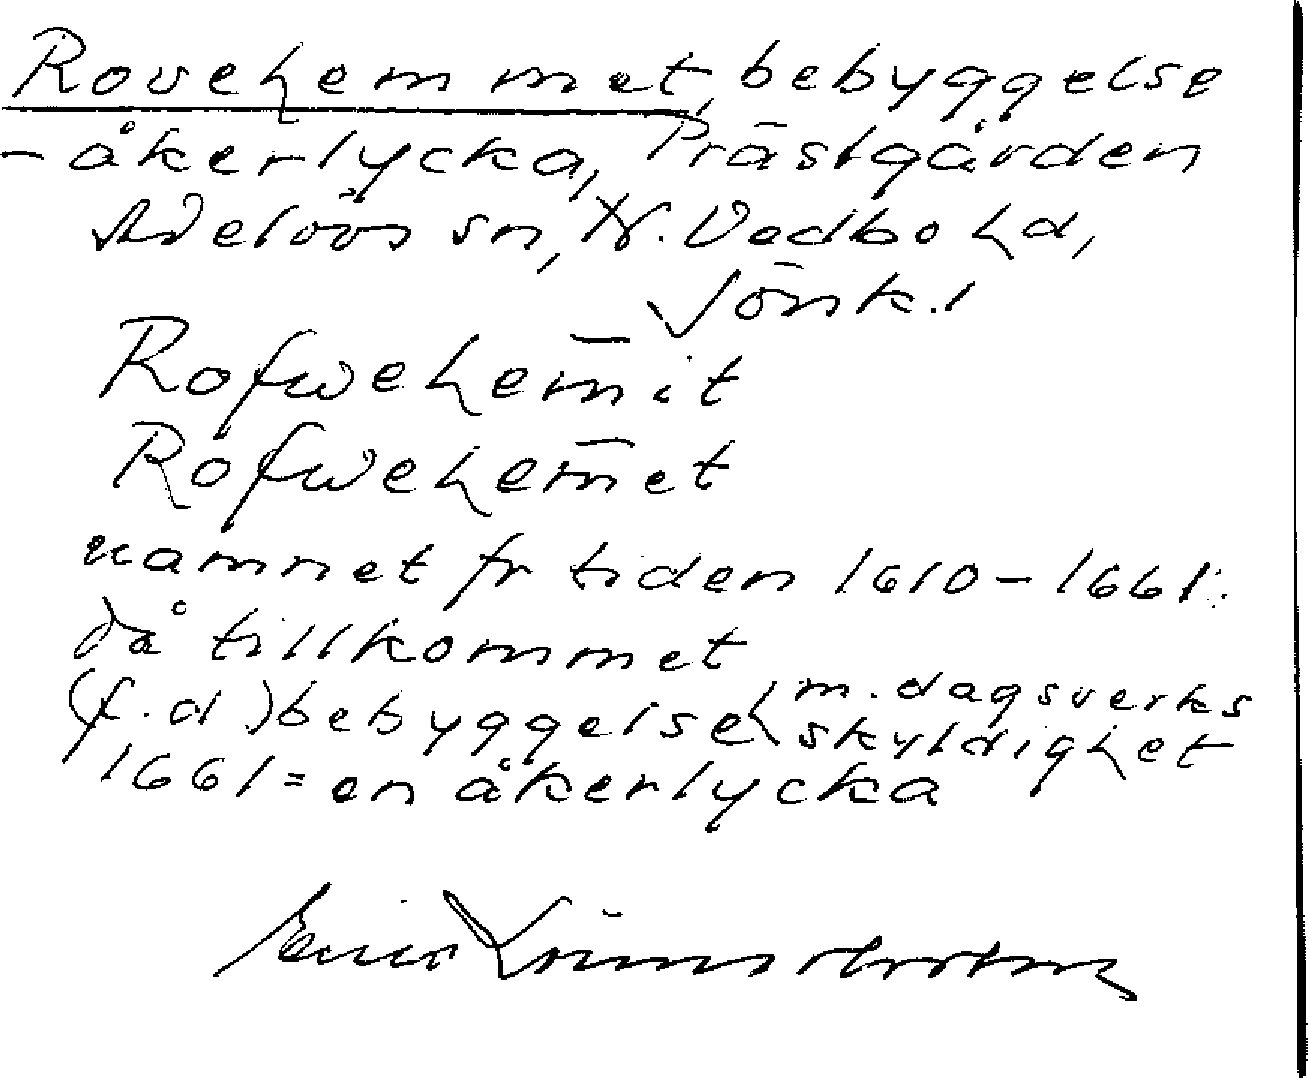 Rovehemmet, bebyggelse
- åkerlycka, Prästgården
Adelövs sn, N. Vedbo hd,
Jönk. l
Rofwehem̄it
Rofwehem̄et
namnet fr tiden 1610-1661:
då tillkommet
(f.d.) bebyggelse m. dagsverks
skyldighet
1661 = en åkerlycka